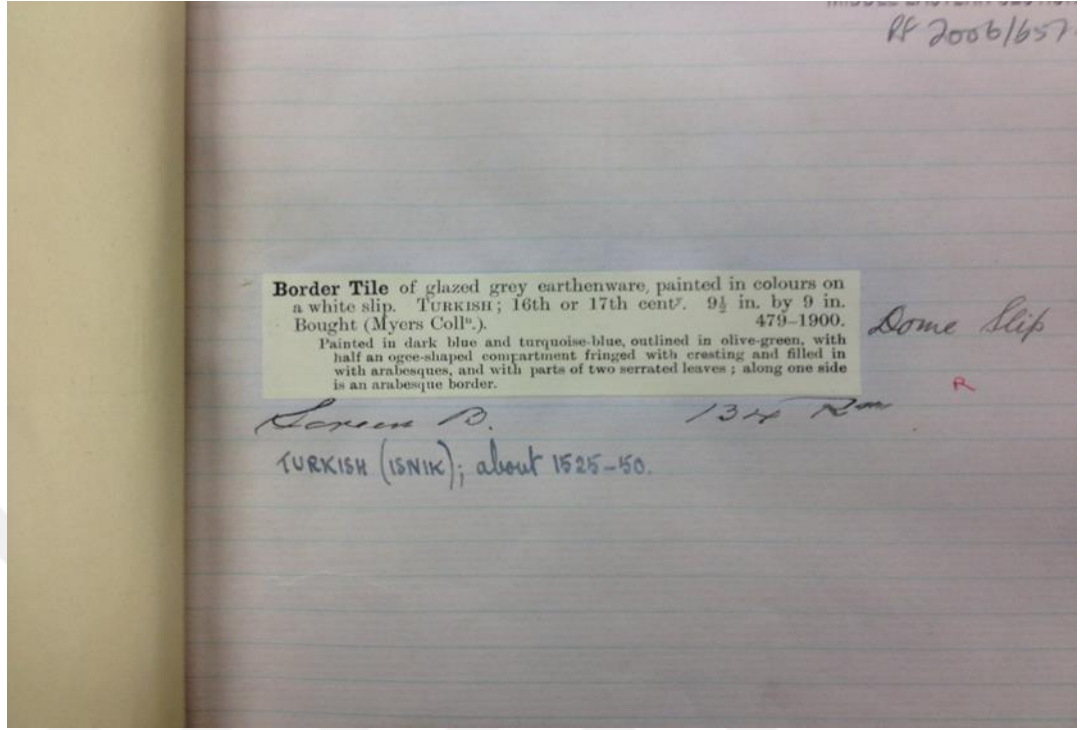 RF 2006/657
Border Tile of glazed grey earthenware, painted in colours on
a white slip. TURKISH; 16th or 17th centy. 9½ in. by 9 in.
Bought (Myers Colln.). 479–1900.
Painted in dark blue and turquoise-blue, outlined in olive-green, with
half an ogee-shaped compartment fringed with cresting and filled in
with arabesques, and with parts of two serrated leaves; along one side
is an arabesque border.
Dome Slip
R
Screen B. 134 Rm
TURKISH (ISNIK); about 1525-50.